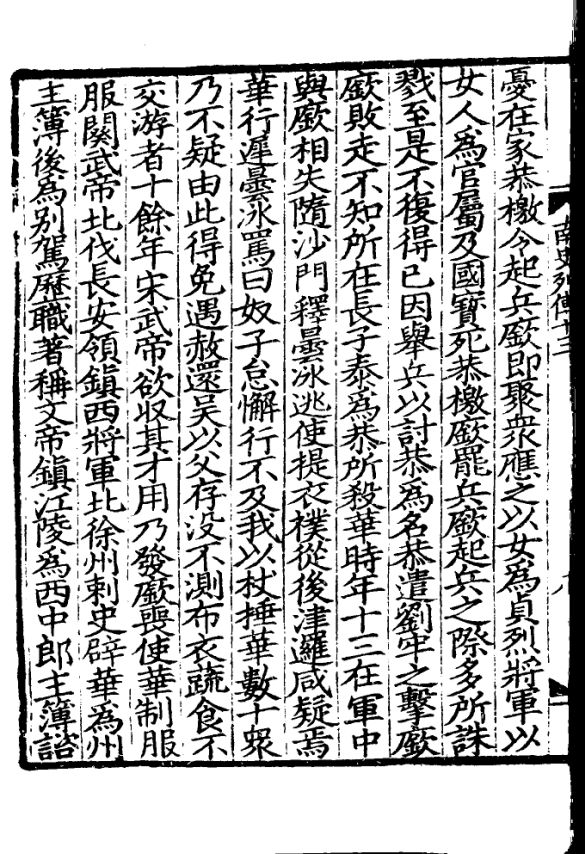 南史列傳十三
憂在家恭檄令起兵廞即聚衆應之以女爲貞烈將軍以
女人爲官屬及國寶死恭檄廞罷兵廞起兵之際多所誅
戮至是不復得已因舉兵以討恭爲名恭遣劉牢之擊廞
廞敗走不知所在長子泰爲恭所殺華時年十三在軍中
與廞相失隨沙門釋曇冰逃使提衣襆從後津邏咸疑焉
華行遲曇冰罵曰奴子怠懈行不及我以杖捶華數十衆
乃不疑由此得免遇赦還吳以父存没不測布衣蔬食不
交游者十餘年宋武帝欲収其才用乃發廞喪使華制服
服闋武帝北伐長安領鎮西將軍北徐州刺史辟華爲州
主簿後爲别駕歷職著稱文帝鎮江陵爲西中郎主簿諮